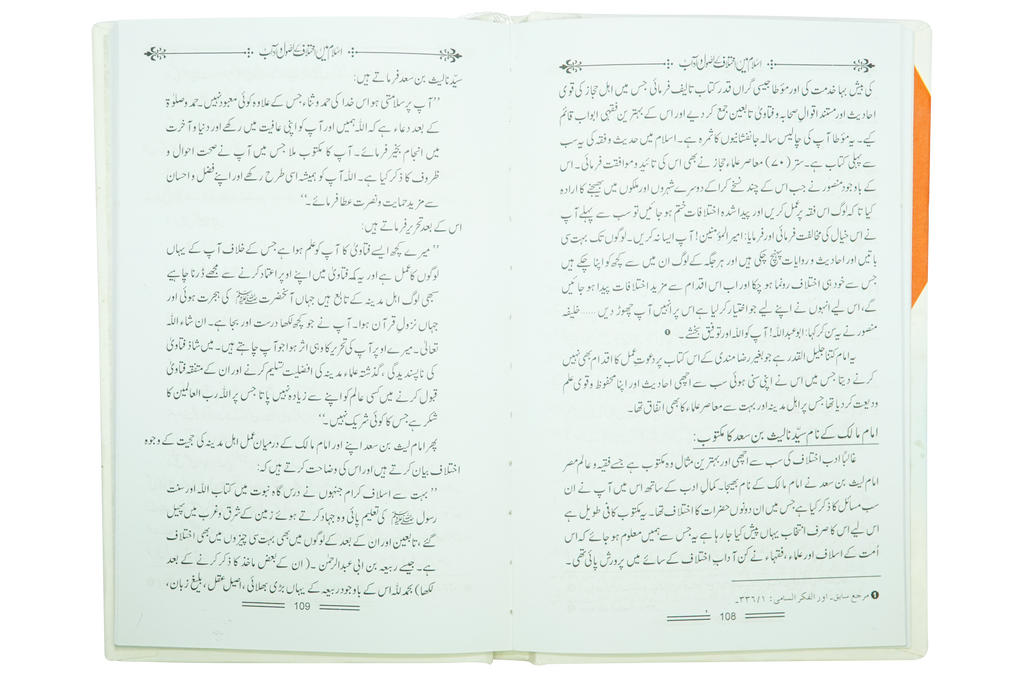 اسلام میں اختلاف کے اصول و آداب
کی بیش بہا خدمت کی اور مؤطا جیسی گراں قدر کتاب تالیف فرمائی جس میں اہل حجاز کی قوی
احادیث اور مستند اقوالِ صحابہ و فتاویٰ تابعین جمع کر دیے اور اس کے بہترین فقہی ابواب قائم
کیے۔ یہ مؤطا آپ کی چالیس سالہ جانفشانیوں کا ثمرہ ہے۔ اسلام میں حدیث و فقہ کی یہ سب
سے پہلی کتاب ہے۔ ستر (۷۰) معاصر علماء حجاز نے بھی اس کی تائید و موافقت فرمائی۔ اس
کے باوجود منصور نے جب اس کے چند نسخے کرا کے دوسرے شہروں اور ملکوں میں بھیجنے کا ارادہ
کیا تا کہ لوگ اس فقہ پر عمل کریں اور پیدا شدہ اختلافات ختم ہو جائیں تو سب سے پہلے آپ
نے اس خیال کی مخالفت فرمائی اور فرمایا: امیر المؤمنین! آپ ایسا نہ کریں۔ لوگوں تک بہت سی
باتیں اور احادیث و روایات پہنچ چکی ہیں اور ہر جگہ کے لوگ ان میں سے کچھ کو اپنا چکے ہیں
جس سے خود ہی اختلاف رونما ہو چکا اور اب اس اقدام سے مزید اختلافات پیدا ہو جائیں
گے، اس لیے انہوں نے اپنے لیے جو اختیار کر لیا ہے اس پر انہیں آپ چھوڑ دیں ...... خلیفہ
منصور نے یہ سن کر کہا: ابو عبداللہ! آپ کو اللہ اور توفیق بخشے۔ ❶
یہ امام کتنا جلیل القدر ہے جو بغیر رضا مندی کے اس کتاب پر دعوتِ عمل کا اقدام بھی نہیں
کرنے دیتا جس میں اس نے اپنی سنی ہوئی سب سے اچھی احادیث اور اپنا محفوظ و قوی علم
ودیعت کر دیا تھا جس پر اہل مدینہ اور بہت سے معاصر علماء کا بھی اتفاق تھا۔
امام مالک کے نام سیّدنا لیث بن سعد کا مکتوب:
غالبًا ادب اختلاف کی سب سے اچھی اور بہترین مثال وہ مکتوب ہے جسے فقیہ و عالم مصر
امام لیث بن سعد نے امام مالک کے نام بھیجا۔ کمالِ ادب کے ساتھ اس میں آپ نے ان
سب مسائل کا ذکر کیا ہے جس میں ان دونوں حضرات کا اختلاف تھا۔ یہ مکتوب کافی طویل ہے
اس لیے اس کا صرف انتخاب یہاں پیش کیا جا رہا ہے جس سے ہمیں معلوم ہو جائے کہ اس
اُمت کے اسلاف اور علماء، فقہاء نے کن آداب اختلاف کے سائے میں پرورش پائی تھی۔
❶ مرجع سابق۔ اور الفکر السامی: ۳۳۶/۱۔
108
اسلام میں اختلاف کے اصول و آداب
سیّدنا لیث بن سعد فرماتے ہیں:
’’آپ پر سلامتی ہو اس خدا کی حمد و ثناء جس کے علاوہ کوئی معبود نہیں۔ حمد و صلوٰۃ
کے بعد دعاء ہے کہ اللہ ہمیں اور آپ کو اپنی عافیت میں رکھے اور دنیا و آخرت
میں انجام بخیر فرمائے۔ آپ کا مکتوب ملا جس میں آپ نے صحت احوال و
ظروف کا ذکر کیا ہے۔ اللہ آپ کو ہمیشہ اسی طرح رکھے اور اپنے فضل و احسان
سے مزید حمایت و نصرت عطا فرمائے۔‘‘
اس کے بعد تحریر فرماتے ہیں:
’’میرے کچھ ایسے فتاویٰ کا آپ کو علم ہوا ہے جس کے خلاف آپ کے یہاں
لوگوں کا عمل ہے اور یہ کہ فتاویٰ میں اپنے اوپر اعتماد کرنے سے مجھے ڈرنا چاہیے
سبھی لوگ اہل مدینہ کے تابع ہیں جہاں آنحضرت ﷺ کی ہجرت ہوئی اور
جہاں نزولِ قرآن ہوا۔ آپ نے جو کچھ لکھا درست اور بجا ہے۔ ان شاء اللہ
تعالیٰ۔ میرے اوپر آپ کی تحریر کا وہی اثر ہوا جو آپ چاہتے ہیں۔ میں شاذ فتاویٰ
کی ناپسندیدگی، گذشتہ علماء مدینہ کی افضلیت تسلیم کرنے اور ان کے متفقہ فتاویٰ
قبول کرنے میں کسی عالم کو اپنے سے زیادہ نہیں پاتا جس پر اللہ رب العالمین کا
شکر ہے جس کا کوئی شریک نہیں۔‘‘
پھر امام لیث بن سعد اپنے اور امام مالک کے درمیان عمل اہل مدینہ کی حجیت کے وجوہ
اختلاف بیان کرتے ہیں اور اس کی وضاحت کرتے ہیں کہ:
’’بہت سے اسلاف کرام جنہوں نے درس گاہ نبوت میں کتاب اللہ اور سنت
رسول ﷺ کی تعلیم پائی وہ جہاد کرتے ہوئے زمین کے شرق و غرب میں پھیل
گئے، تابعین اور ان کے بعد کے لوگوں میں بھی بہت سی چیزوں میں بھی اختلاف
ہے۔ جیسے ربیعہ بن ابی عبدالرحمٰن۔ (ان کے بعض ماخذ کا ذکر کرنے کے بعد
لکھا) بحمد للہ اس کے باوجود ربیعہ کے یہاں بڑی بھلائی، اصیل عقل، بلیغ زبان،
109